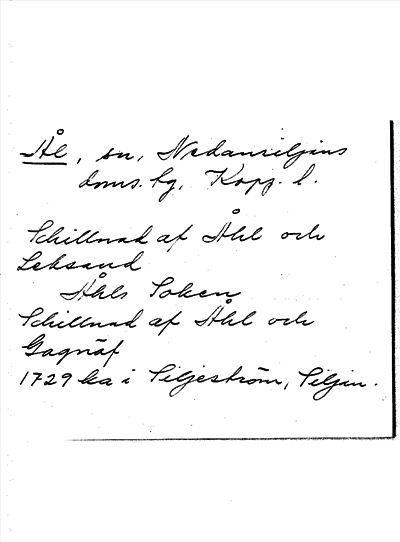 Ål, sn, Nedansiljans
doms. hg, Kopp. l.
Schillnad af Åhl och
Leksand
Åhls Soken
Schillnad af Åhl och
Gagnäf
1729 ka i Siljeström, Siljan.